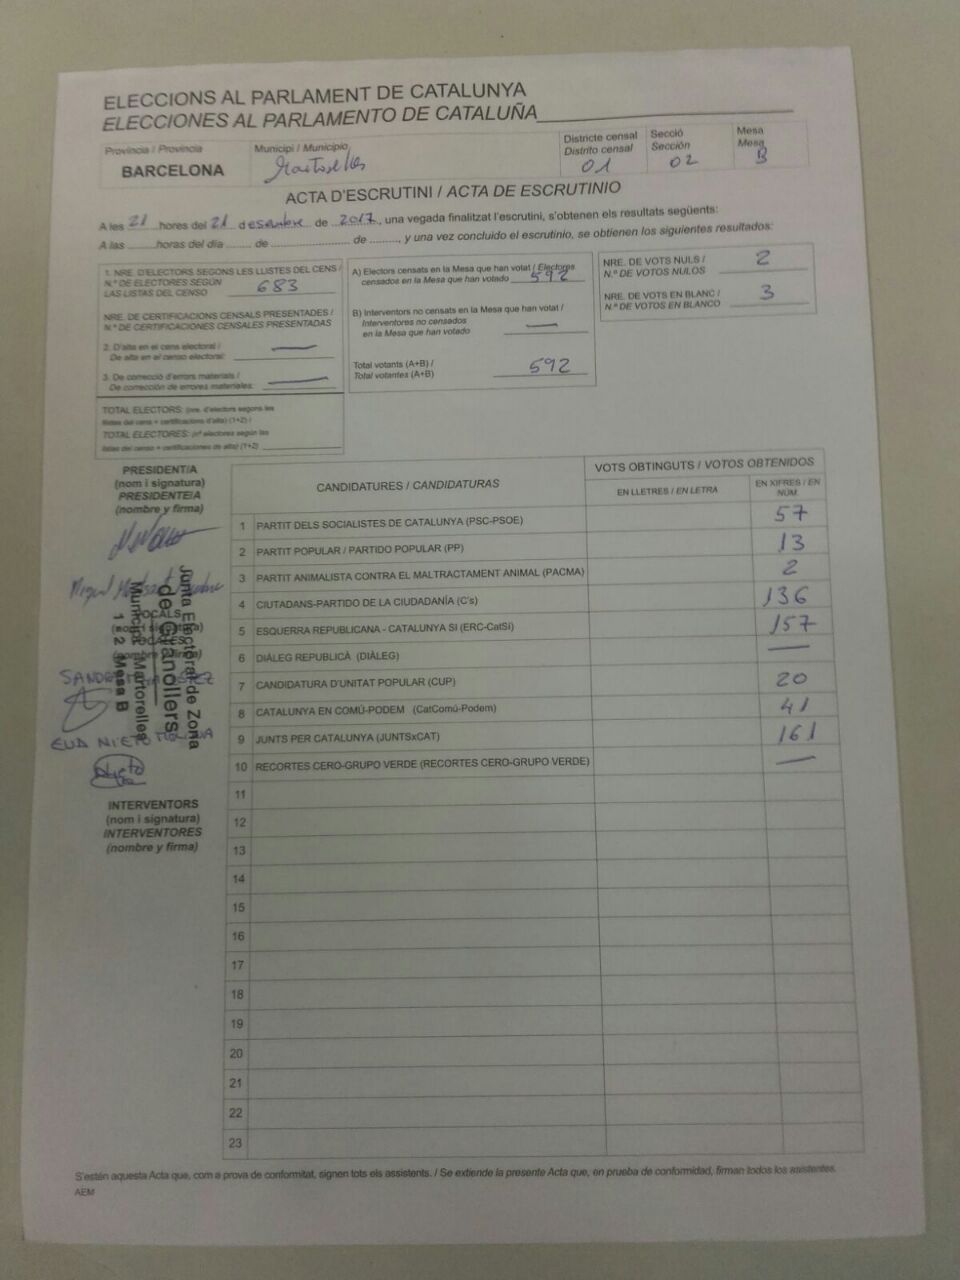 ELECCIONS AL PARLAMENT DE CATALUNYA
ELECCIONES AL PARLAMENTO DE CATALUÑA
Província / Provincia
BARCELONA
Municipi / Municipio
Martorelles
Districte censal
Distrito censal
01
Secció
Sección
02
Mesa
Mesa
B
ACTA D'ESCRUTINI / ACTA DE ESCRUTINIO
A les 21 hores del 21 desembre de 2017, una vegada finalitzat l'escrutini, s'obtenen els resultats següents:
A las horas del día de de , y una vez concluido el escrutinio, se obtienen los siguientes resultados:
1. NRE. D'ELECTORS SEGONS LES LLISTES DEL CENS /
N.º DE ELECTORES SEGÚN
LAS LISTAS DEL CENSO 683
NRE. DE CERTIFICACIONS CENSALS PRESENTADES /
N.º DE CERTIFICACIONES CENSALES PRESENTADAS
2. D'alta en el cens electoral / —
De alta en el censo electoral:
3. De correcció d'errors materials / —
De corrección de errores materiales:
TOTAL ELECTORS: (nre. d'electors segons les
llistes del cens + certificacions d'alta) (1+2) /
TOTAL ELECTORES: (nº electores según las
listas del censo + certificaciones de alta) (1+2)
A) Electors censats en la Mesa que han votat / Electores
censados en la Mesa que han votado 592
B) Interventors no censats en la Mesa que han votat /
Interventores no censados
en la Mesa que han votado —
Total votants (A+B) /
Total votantes (A+B) 592
NRE. DE VOTS NULS /
N.º DE VOTOS NULOS 2
NRE. DE VOTS EN BLANC /
N.º DE VOTOS EN BLANCO 3
PRESIDENT/A
(nom i signatura)
PRESIDENTE/A
(nombre y firma)
Miquel
VOCALS
(nom i signatura)
VOCALES
(nombre y firma)
SANDRA
EVA NIETO MOLINA
Junta Electoral de Zona
de Granollers
Municipi Martorelles
1 2 Mesa B
INTERVENTORS
(nom i signatura)
INTERVENTORES
(nombre y firma)
CANDIDATURES / CANDIDATURAS
VOTS OBTINGUTS / VOTOS OBTENIDOS
EN LLETRES / EN LETRA
EN XIFRES / EN
NÚM.
1 PARTIT DELS SOCIALISTES DE CATALUNYA (PSC-PSOE) 57
2 PARTIT POPULAR / PARTIDO POPULAR (PP) 13
3 PARTIT ANIMALISTA CONTRA EL MALTRACTAMENT ANIMAL (PACMA) 2
4 CIUTADANS-PARTIDO DE LA CIUDADANÍA (C's) 136
5 ESQUERRA REPUBLICANA - CATALUNYA SI (ERC-CatSí) 157
6 DIÀLEG REPUBLICÀ (DIÀLEG) —
7 CANDIDATURA D'UNITAT POPULAR (CUP) 20
8 CATALUNYA EN COMÚ-PODEM (CatComú-Podem) 41
9 JUNTS PER CATALUNYA (JUNTSxCAT) 161
10 RECORTES CERO-GRUPO VERDE (RECORTES CERO-GRUPO VERDE) —
11
12
13
14
15
16
17
18
19
20
21
22
23
S'estén aquesta Acta que, com a prova de conformitat, signen tots els assistents. / Se extiende la presente Acta que, en prueba de conformidad, firman todos los asistentes.
AEM